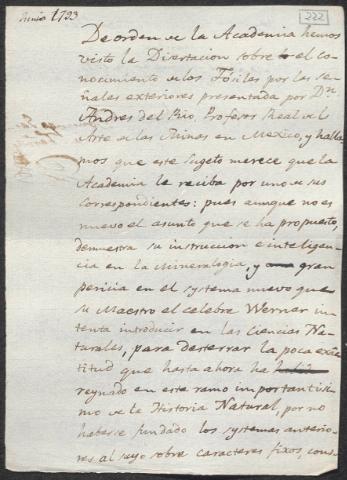 Junio 1793
222
De orden de la Academia hemos
visto la Disertacion sobre el co
nocimiento de los Fósiles por las se
ñales exteriores presentada por Dn.
Andres del Rio, Profesor Real del
Arte de las Minas en Mexico, y halla
mos que este Sugeto merece que la
Academia le reciba por uno de sus
correspondientes: pues aunque no es
nuevo el asunto que se ha propuesto,
demuestra su instruccion e inteligen
cia en la Mineralogia, y gran
pericia en el systema nuevo que
su Maestro el celebre Werner in
tenta introducir en las Ciencias Na
turales, para desterrar la poca exâc
titud que hasta ahora ha
reynado en este ramo importantisi
mo de la Historia Natural, por no
haberse fundado los systemas anterio
res al suyo sobre caracteres fixos, cons